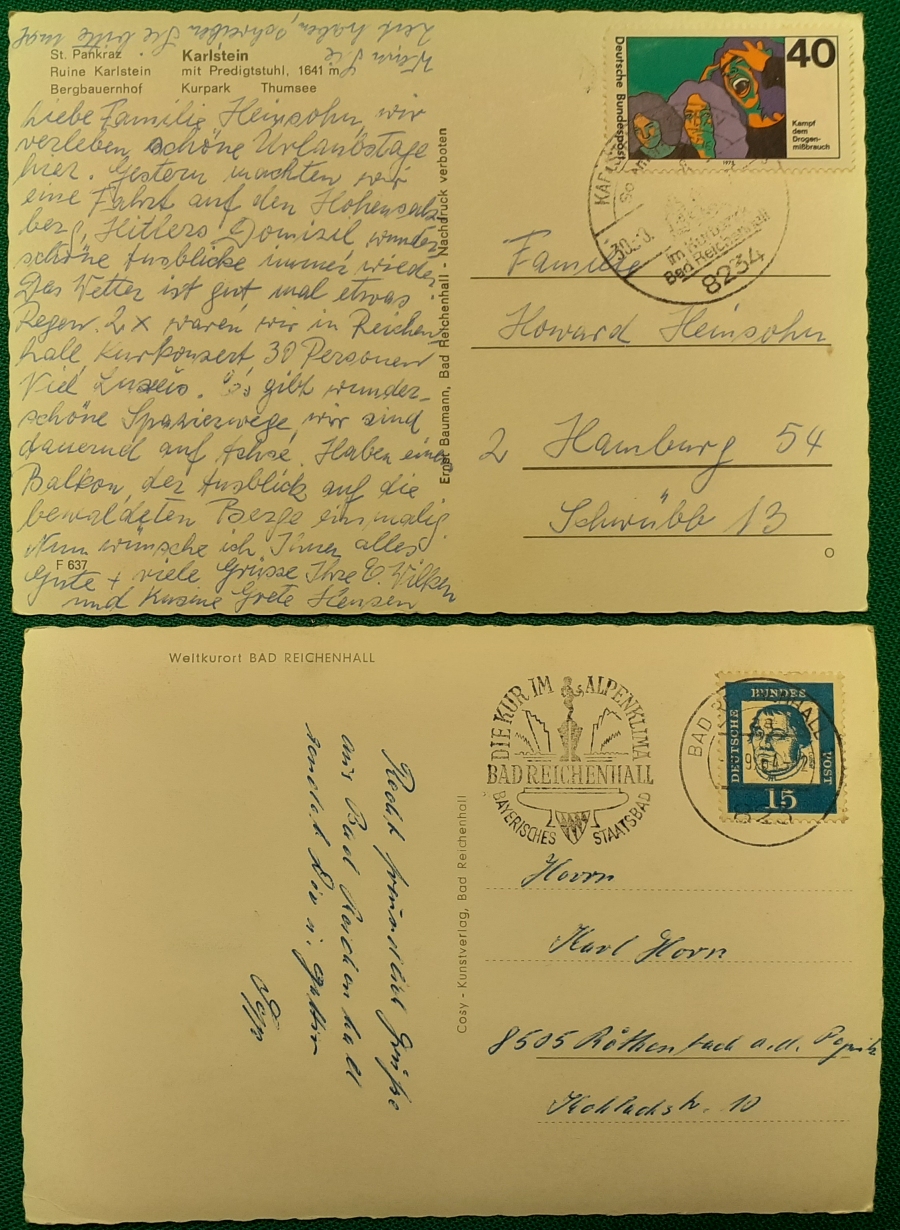 Wenn Sie
Zeit haben, schreiben Sie bitte mal
St. Pankraz
Karlstein
Ruine Karlstein
mit Predigtstuhl, 1641 m
Bergbauernhof
Kurpark
Thumsee
Liebe Familie Heinsohn, wir
verleben schöne Urlaubstage
hier. Gestern machten wir
eine Fahrt auf den Hohensalz-
berg, Hitlers Domizil, wunder
schöne Ausblicke immer wieder
Das Wetter ist gut mal etwas
Regen. 2 x waren wir in Reichen
hall, Kurkonzert, 30 Personen
Viel Luxus. Es gibt wunder-
schöne Spazierwege, wir sind
dauernd auf Achse. Haben einen
Balkon, der Ausblick auf die
bewaldeten Berge einmalig.
Nun wünsche ich Ihnen alles
Gute + viele Grüsse Ihre E. Wilken
und Kusine Grete Hensen
F 637
Ernst Baumann, Bad Reichenhall - Nachdruck verboten
Deutsche Bundespost
40
Kampf
dem
Drogen-
mißbrauch
im Kurbezirk
Bad Reichenhall
8234
Familie
Howard Heinsohn
2 Hamburg 54
Schwübb 13
Weltkurort BAD REICHENHALL
Recht freundliche Grüße
aus Bad Reichenhall
sendet Dir u. Gattin
Cosy - Kunstverlag, Bad Reichenhall
DIE KUR IM ALPENKLIMA
BAD REICHENHALL
BAYERISCHES STAATSBAD
BAD REICHENHALL
DEUTSCHE BUNDESPOST
15
Herrn
Karl Horn
8505 Röthenbach a.d. Pegnitz
Kohlachstr. 10